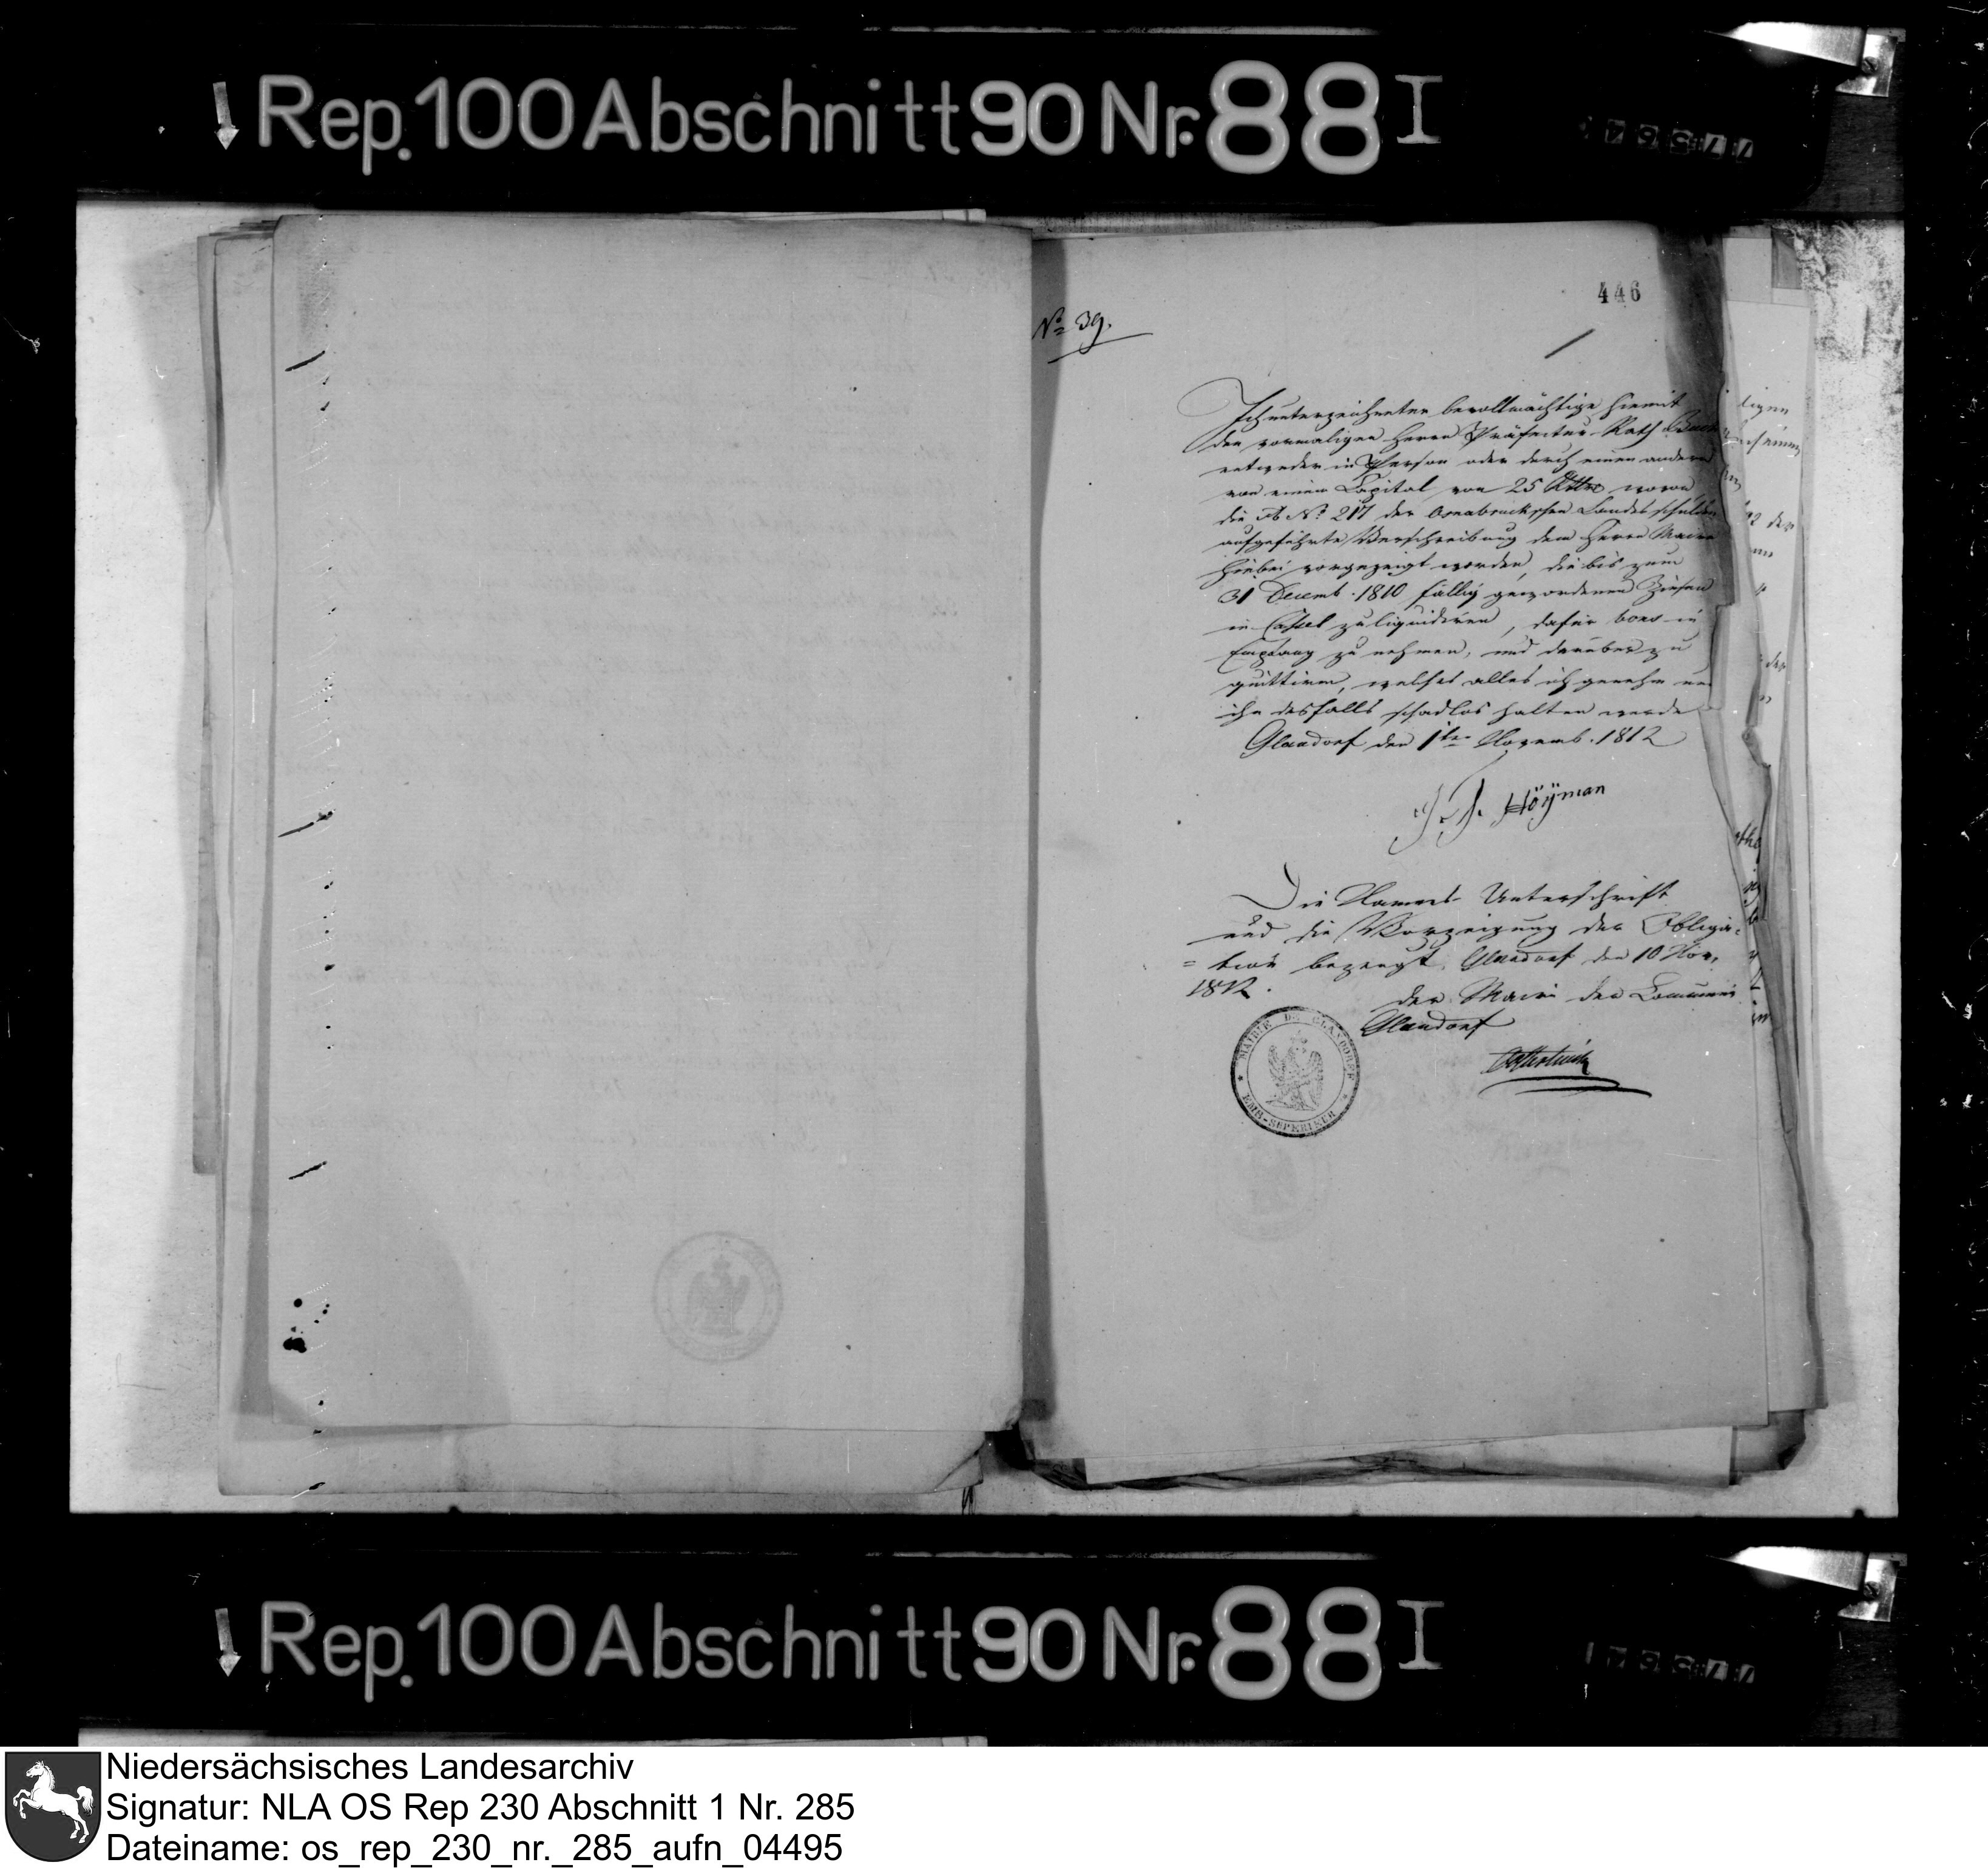 Rep. 100 Abschnitt 90 Nr. 88 I
446
No 39.
Ich unterzeichneter bevollmächtige hiemit
den vormaligen Herrn Präfectur-Rath
entweder in Person oder durch einen andern
von einem Capital von 25 Rthlr wovon
die No 217 der Osnabrückschen Landesschulden
aufgeführte Verschreibung dem Herrn Maire
hiebei vorgezeigt worden, die bis zum
31 Decemb. 1810 fällig gewordenen Zinsen
in Cassel zu liquidiren, dafür bons in
Empfang zu nehmen, und darüber zu
quittiren, welches alles ich genehm
ihn desfalls schadlos halten werde
Glandorf den 1ten Novemb. 1812
J. Höÿman
Die Namens Unterschrift
und die Vorzeigung der Obliga-
= tion bezeugt Glandorf den 10 Nov.
1812.
der Maire der Commune
Glandorf
MAIRIE DE GLANDORF
* EMS-SUPERIEUR *
Rep. 100 Abschnitt 90 Nr. 88 I
Niedersächsisches Landesarchiv
Signatur: NLA OS Rep 230 Abschnitt 1 Nr. 285
Dateiname: os_rep_230_nr._285_aufn_04495